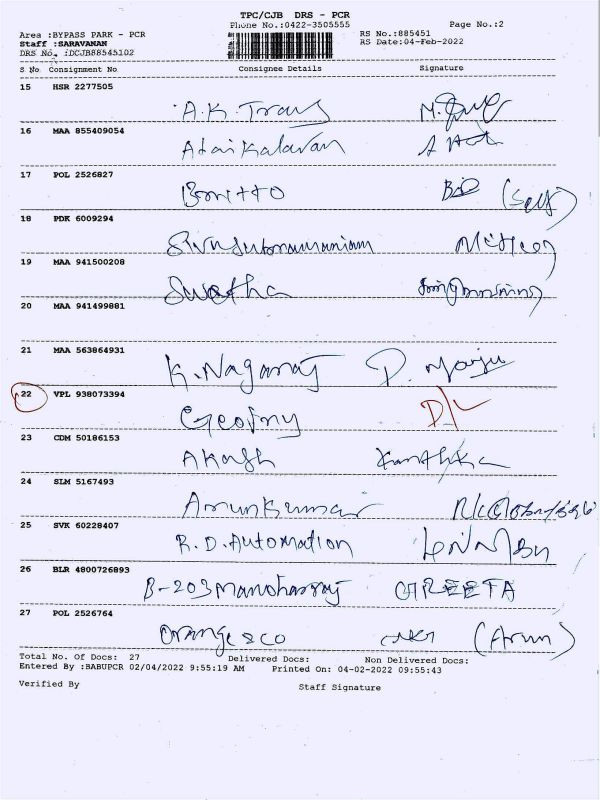 TPC/CJB DRS - PCR
Phone No.:0422-3505555
Page No.:2
Area :BYPASS PARK - PCR
RS No.:885451
Staff :SARAVANAN
RS Date:04-Feb-2022
DRS No. :DCJB88545102
S No Consignment No Consignee Details Signature
15 HSR 2277505
A.K. Trans
16 MAA 855409054
Adaikalavan
17 POL 2526827
Britto (Self)
18 PDK 6009294
Sivasubramaniam
19 MAA 941500208
Swetha
20 MAA 941499881
21 MAA 563864931
K. Nagaraj
22 VPL 938073394
D/L
23 CDM 50186153
Akash
24 SLM 5167493
Arunkumar
25 SVK 60228407
R.D. Automation
26 BLR 4800726893
B-203 Manoharraj GREETA
27 POL 2526764
Orange sco (Arun)
Total No. Of Docs: 27 Delivered Docs: Non Delivered Docs:
Entered By :BABUPCR 02/04/2022 9:55:19 AM Printed On: 04-02-2022 09:55:43
Verified By Staff Signature